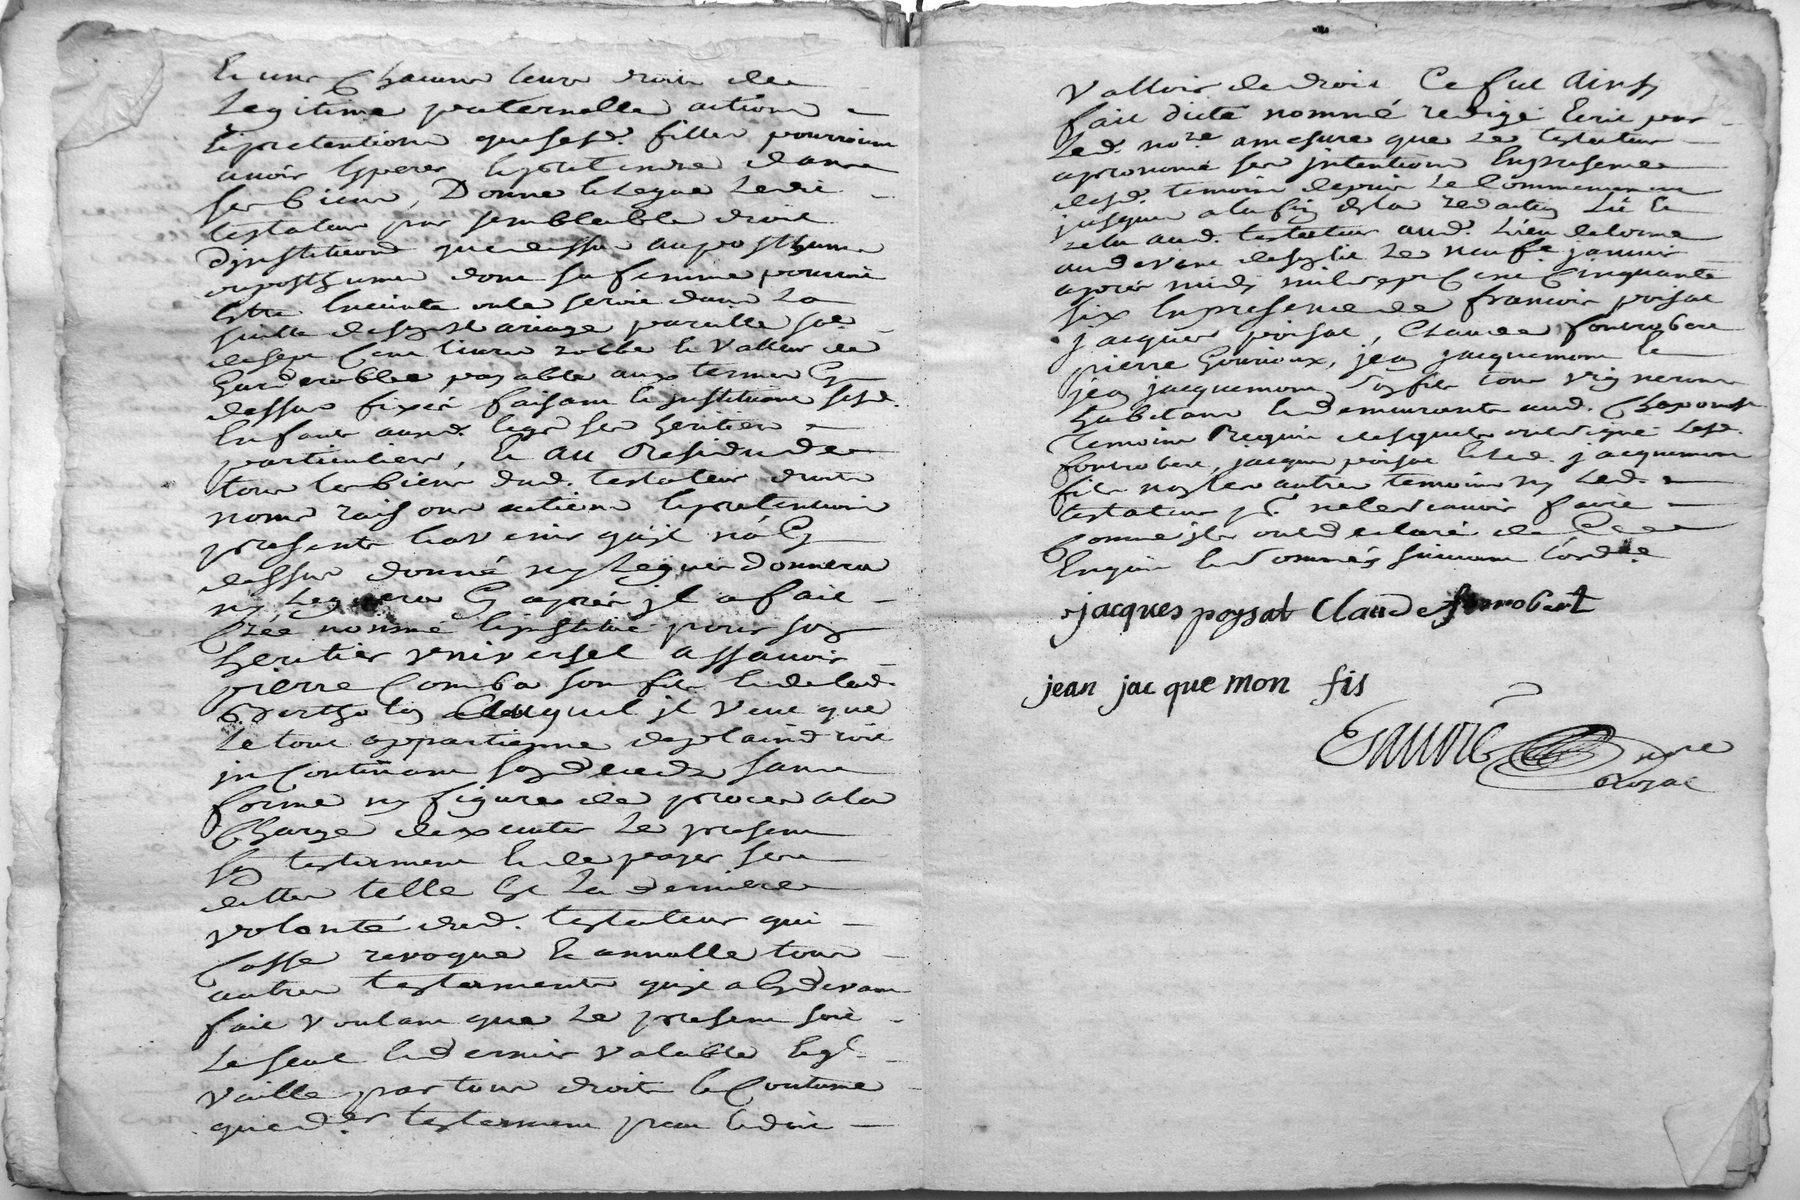 Et une Chacune leurs droits de
Legitime paternelle actions
Et pretentions que sesd. filles pourroient
avoir Esperer Et pretendre dans
ses biens, Donne Et Legue Ledit
testateur par semblable droit
d'institution que dessus au posthume
ou posthumes dont sa femme pourroit
Estre Enceinte ou le seroit dans La
suitte de son mariage pareille so.e
de sept Cent livres robbe Et Valleur de
Garderobbe payable aux termes Cy
dessus fixés faisant Et instituant sesd.
Enfants aud. legs ses heritiers
particuliers, Et Au Residu de
tous les biens dud. testateur droits
noms raisons actions Et pretentions
presents Et avenir qu'il n'a Cy
dessus donné ny Legué Et donnera
ny Leguera Cy après jl a fait
Créé nommé Et institué pour son
heritier vniversel assavoir
pierre Comba son fils Et de lad.
Bertholey auquel jl veut que
Le tout appartienne de plain droit
jn Continant son deceds sans
forme ny figure de proces a la
Charge dexecuter Le present
son testament Et de payer ses
dettes telle Est La derniere
volonté dud. testateur qui
Casse revoque Et annulle tous
autres testaments qu'il a Cy devant
fait voulant que Le present soit
Le seul Et dernier valable Et qu'il
vaille par tous droits Et Coutume
que d.er testament peut Et doit
valloir de droit Ce fut Ainsy
fait dicté nommé redigé Ecrit par
Led. no.re a mesure que Le testateur
a prononcé ses jntentions En presence
desd. temoins depuis Le Commencement
jusques a la fin de la redaction Lû Et
relu aud. testateur aud. Lieu
au devant de l'Eglise Le neuf.e janvier
après midy mil sept Cent Cinquante
six En presence de francois poisat
jacques poisat, Claude fontrobert
pierre Gourioux, jean jacquemont Et
jean jacquemont son fils tous vignerons
habitants Et demeurants aud. Chaponost
temoins Requis desquels ont signé Lesd.
fontrobert, jacques poisat Et led. jacquemont
fils non les autres temoins ny Led.
testateur p.r ne le scavoir faire
Comme jls ont declaré de Ce
Enquis Et sommés suivant L'ord.ce
jacques poysat Claude fonrobert
jean jacquemon fis
no.re
Royal